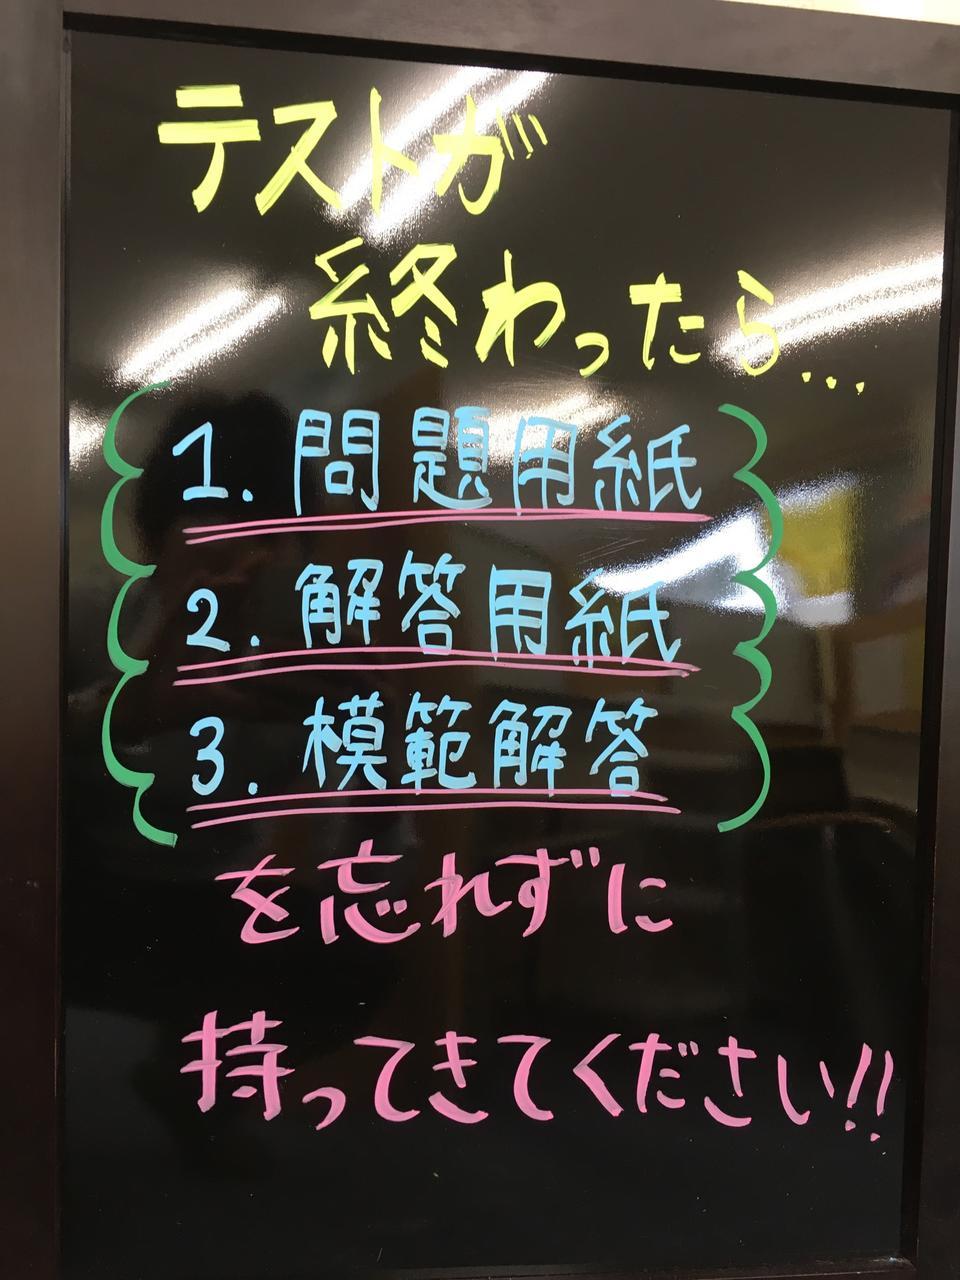 テストが
終わったら...
1. 問題用紙
2. 解答用紙
3. 模範解答
を忘れずに
持ってきてください!!